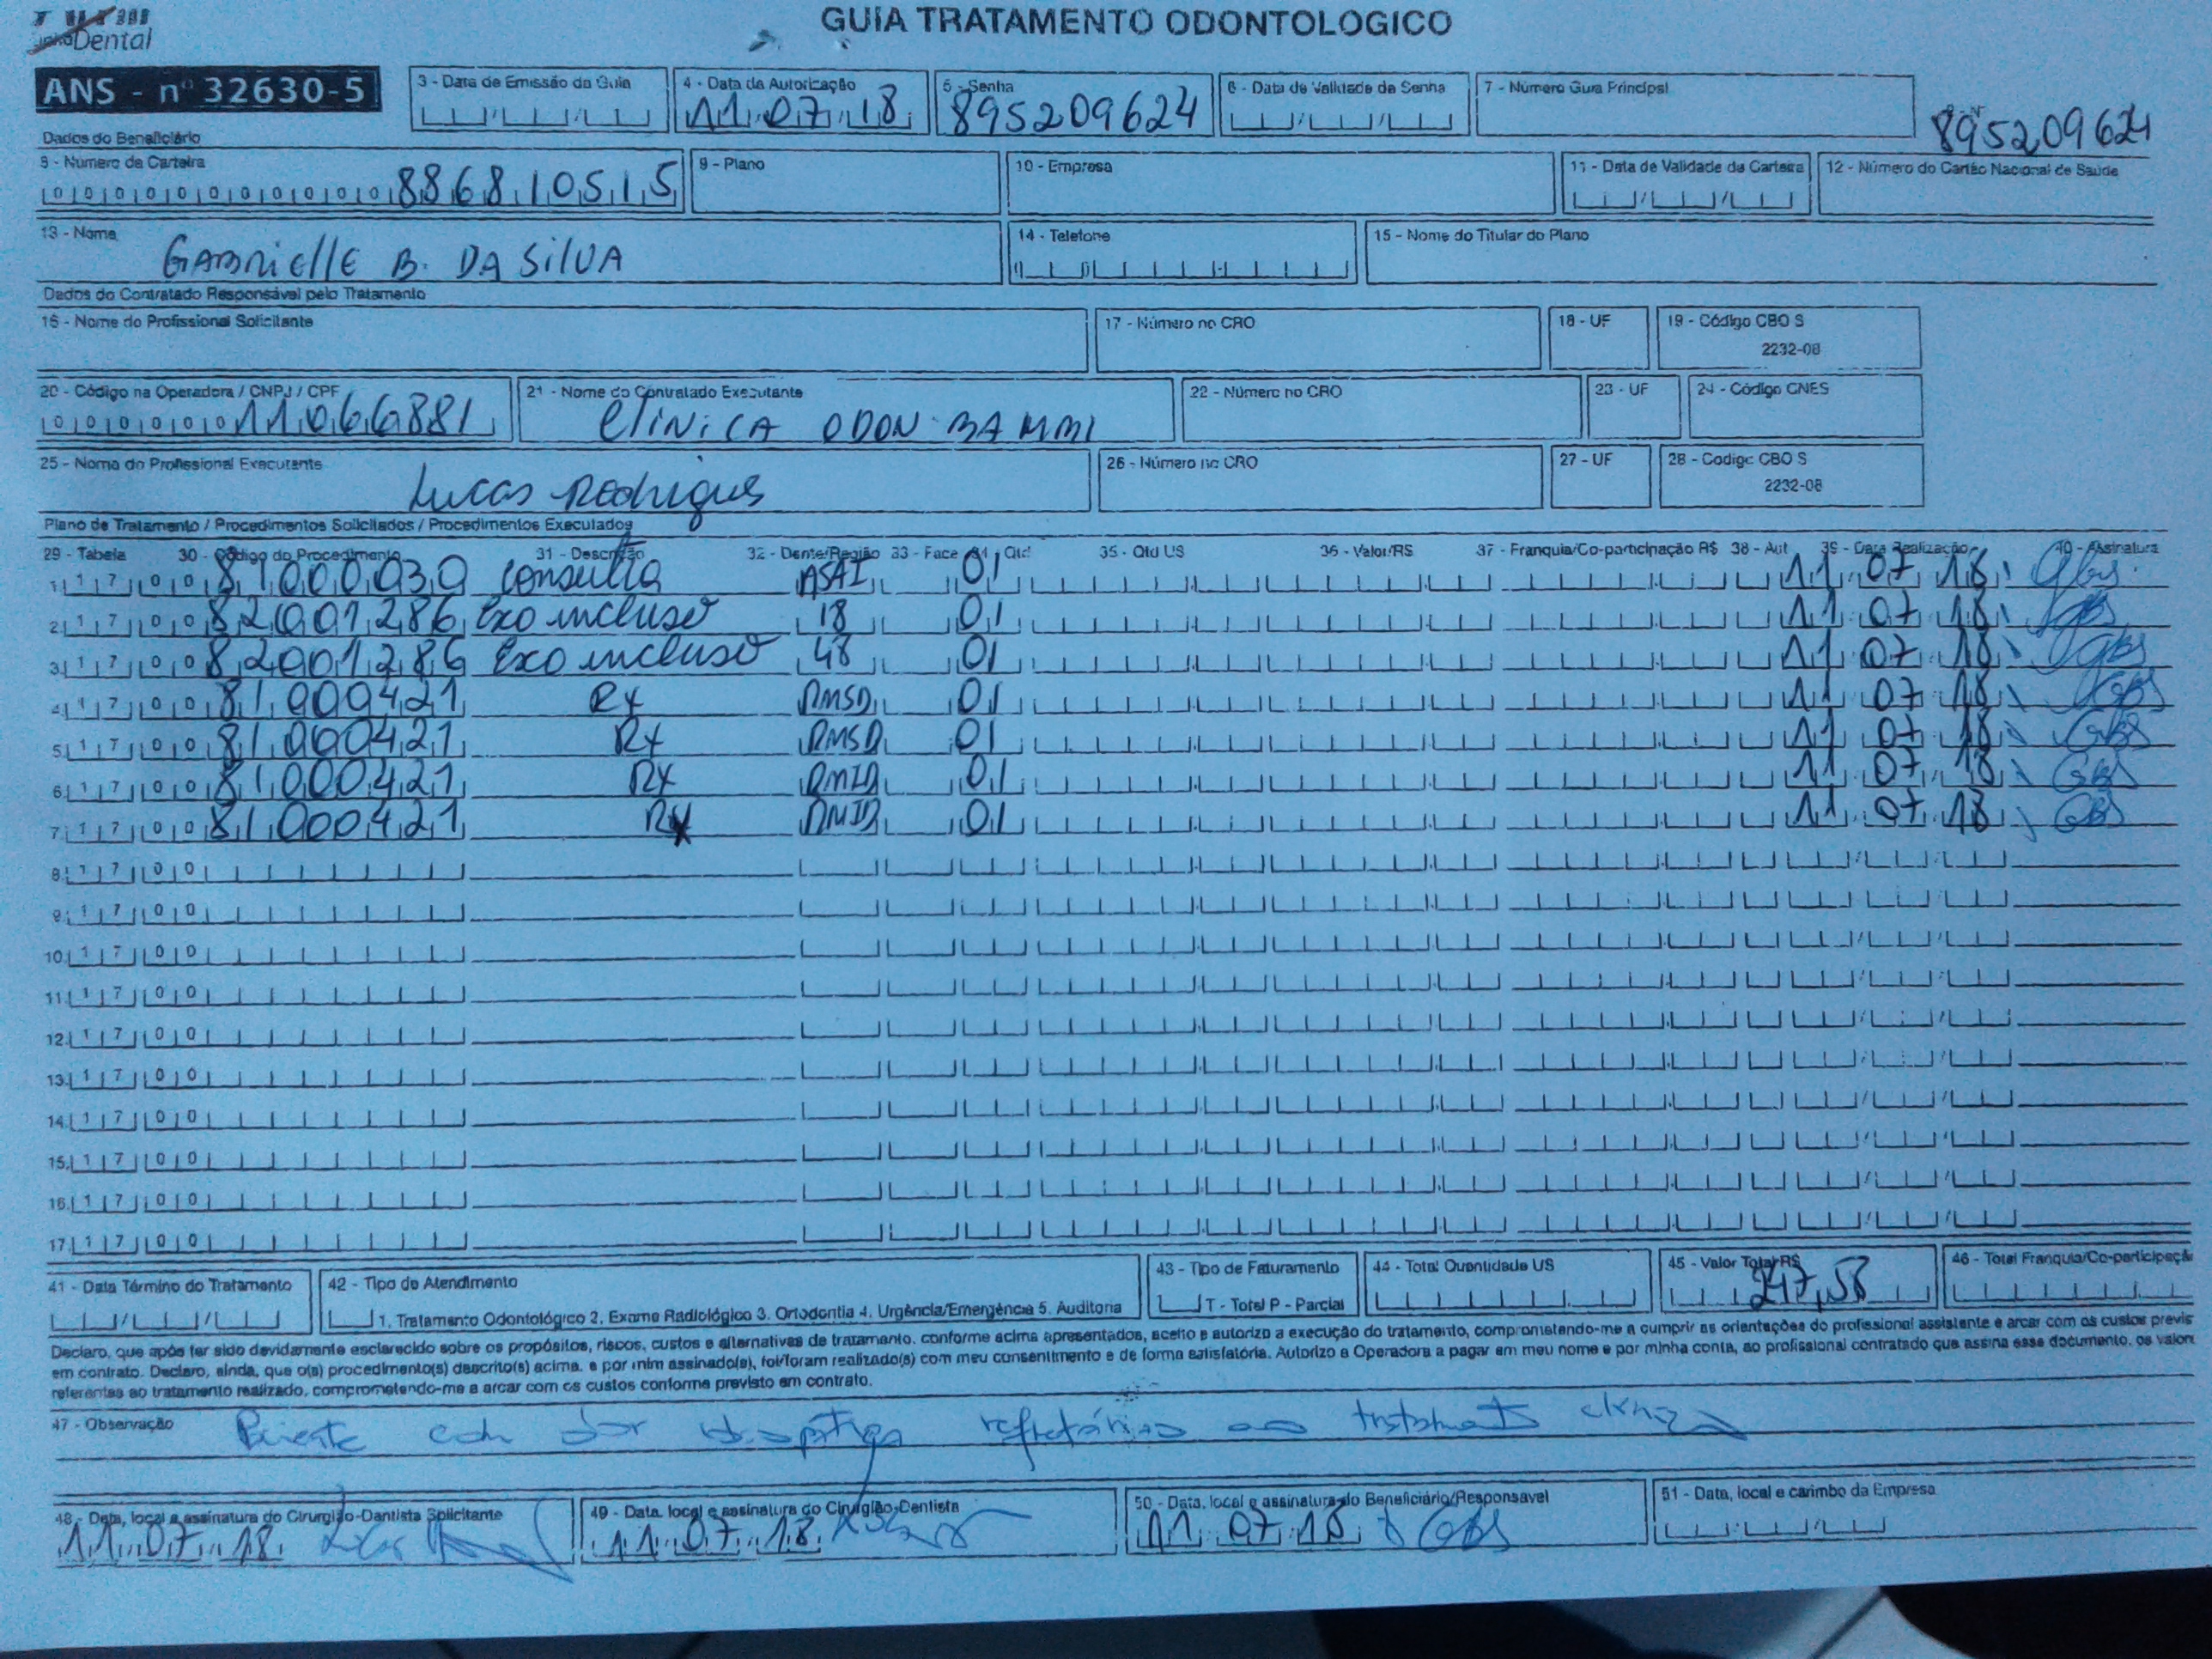 Dental
GUIA TRATAMENTO ODONTOLOGICO
ANS - nº 32630-5
3 - Data de Emissão da Guia
4 - Data da Autorização
11 07 18
5 - Senha
895209624
6 - Data de Validade da Senha
7 - Número Guia Principal
895209624
Dados do Beneficiário
8 - Número da Carteira
00000000000 886810515
9 - Plano
10 - Empresa
11 - Data de Validade da Carteira
12 - Número do Cartão Nacional de Saúde
13 - Nome
GABRIELLE B. DA SILVA
14 - Telefone
15 - Nome do Titular do Plano
Dados do Contratado Responsável pelo Tratamento
16 - Nome do Profissional Solicitante
17 - Número no CRO
18 - UF
19 - Código CBO S
2232-08
20 - Código na Operadora / CNPJ / CPF
000000 11066881
21 - Nome do Contratado Executante
CLINICA ODON BAMBI
22 - Número no CRO
23 - UF
24 - Código CNES
25 - Nome do Profissional Executante
Lucas Rodrigues
26 - Número no CRO
27 - UF
28 - Código CBO S
2232-08
Plano de Tratamento / Procedimentos Solicitados / Procedimentos Executados
29 - Tabela 30 - Código do Procedimento 31 - Descrição 32 - Dente/Região 33 - Face 34 - Qtd 35 - Qtd US 36 - Valor/RS 37 - Franquia/Co-participação R$ 38 - Aut 39 - Data Realização 40 - Assinatura
1 17 00 81000030 consulta ASAI 01 11 07 18 GBS
2 17 00 82001286 Exo incluso 18 01 11 07 18 GBS
3 17 00 82001286 Exo incluso 48 01 11 07 18 GBS
4 17 00 81000421 RX RMSD 01 11 07 18 GBS
5 17 00 81000421 RX RMSD 01 11 07 18 GBS
6 17 00 81000421 RX RMID 01 11 07 18 GBS
7 17 00 81000421 RX RMID 01 11 07 18 GBS
8 17 00
9 17 00
10 17 00
11 17 00
12 17 00
13 17 00
14 17 00
15 17 00
16 17 00
17 17 00
41 - Data Término do Tratamento
42 - Tipo de Atendimento
1. Tratamento Odontológico 2. Exame Radiológico 3. Ortodontia 4. Urgência/Emergência 5. Auditoria
43 - Tipo de Faturamento
T - Total P - Parcial
44 - Total Quantidade US
45 - Valor Total R$
247,58
46 - Total Franquia/Co-participaçã
Declaro, que após ter sido devidamente esclarecido sobre os propósitos, riscos, custos e alternativas de tratamento, conforme acima apresentados, aceito e autorizo a execução do tratamento, comprometendo-me a cumprir as orientações do profissional assistente e arcar com os custos previs
em contrato. Declaro, ainda, que o(s) procedimento(s) descrito(s) acima, e por mim assinado(s), foi/foram realizado(s) com meu consentimento e de forma satisfatória. Autorizo a Operadora a pagar em meu nome e por minha conta, ao profissional contratado que assina esse documento, os valore
referentes ao tratamento realizado, comprometendo-me a arcar com os custos conforme previsto em contrato.
47 - Observação
Paciente com dor idiopática refratária ao tratamento clínico
48 - Data, local e assinatura do Cirurgião-Dentista Solicitante
11 07 18
49 - Data, local e assinatura do Cirurgião-Dentista
11 07 18
50 - Data, local e assinatura do Beneficiário/Responsavel
11 07 18 GBS
51 - Data, local e carimbo da Empresa